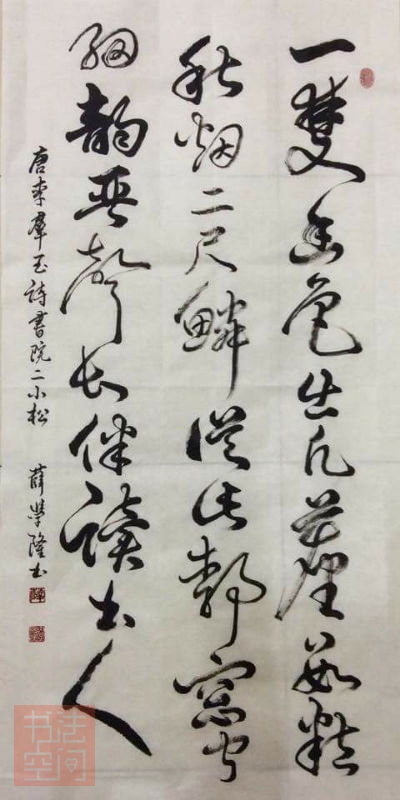 一雙幽色出凡塵數粒
秋烟二尺鱗從此靜窓聞
細韻琴聲長伴讀書人
唐李羣玉詩書院二小松 薛學隆書
书法
空间